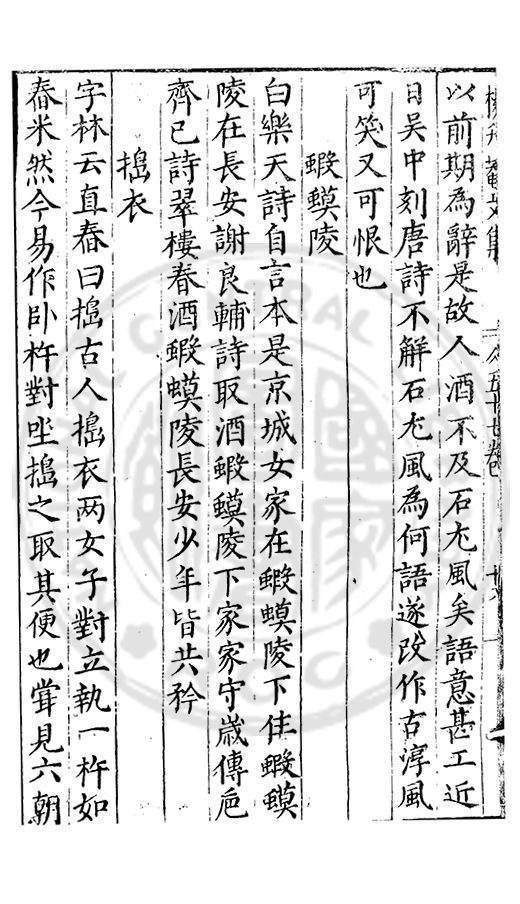 以前期為辭是故人酒不及石尤風矣語意甚工近
日吳中刻唐詩不解石尤風為何語遂改作古淳風
可笑又可恨也
蝦蟆陵
白樂天詩自言本是京城女家在蝦蟆陵下住蝦蟆
陵在長安謝良輔詩取酒蝦蟆陵下家家守歲傳巵
齊已詩翠樓春酒蝦蟆陵長安少年皆共矜
搗衣
字林云直舂曰搗古人搗衣两女子對立執一杵如
舂米然今易作臥杵對坐搗之取其便也嘗見六朝